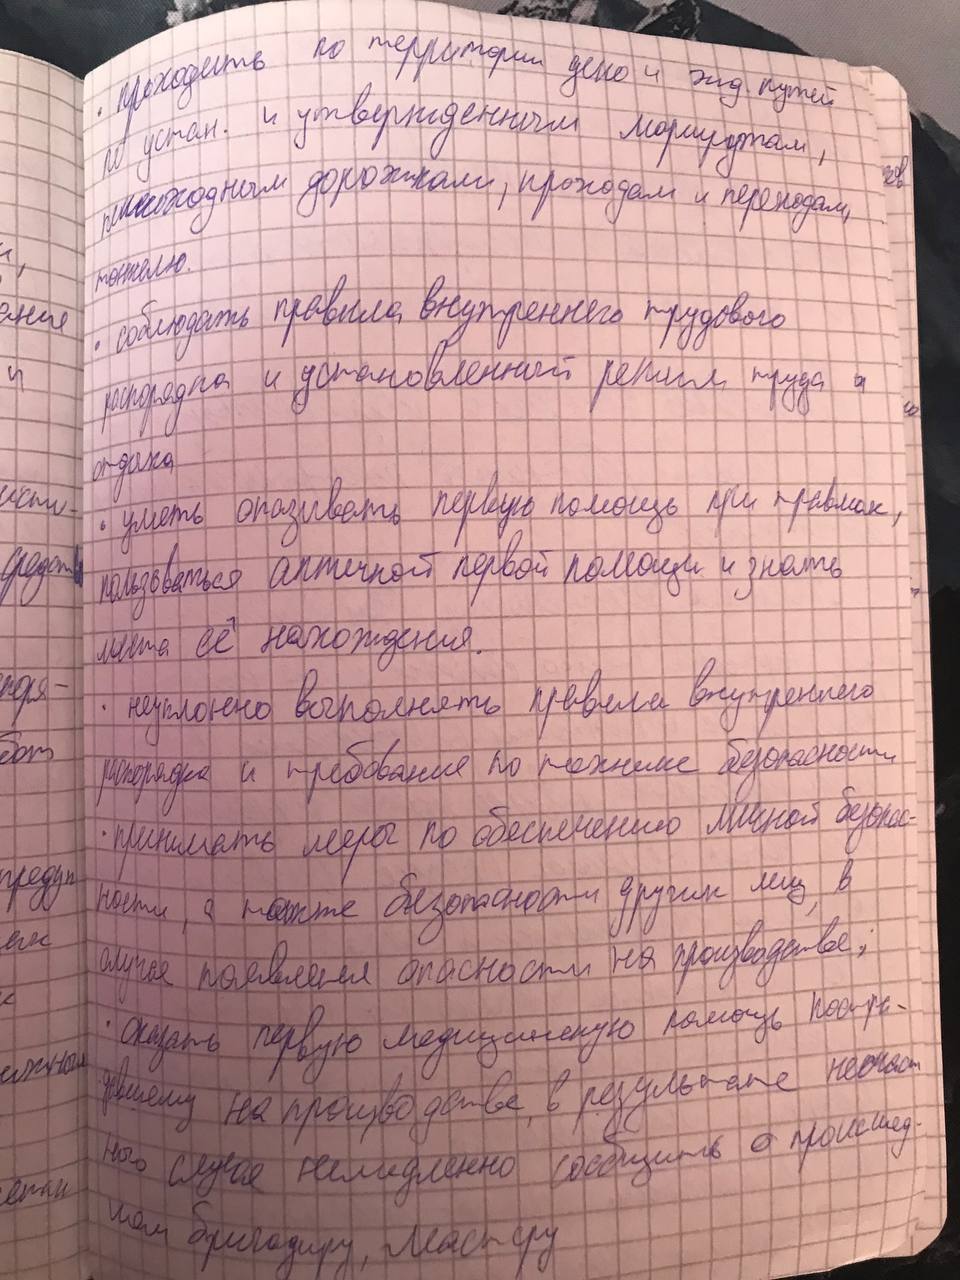 · проходить по территории депо и жд. путей
по устан. и утвержденным маршрутам,
пешеходным дорожкам, проходам и переходам,
тоннелю.
· соблюдать правила внутреннего трудового
распорядка и установленный режим труда и
отдыха
· уметь оказывать первую помощь при травмах,
пользоваться аптечкой первой помощи и знать
места её нахождения.
· неуклонно выполнять правила внутреннего
распорядка и требования по технике безопасности
· принимать меры по обеспечению личной безопас-
ности, а также безопасности других лиц, в
случае появления опасности на производстве;
· оказать первую медицинскую помощь постра-
давшему на производстве, в результате несчаст
ного случая немедленно сообщить о происшед-
шем бригадиру, мастеру